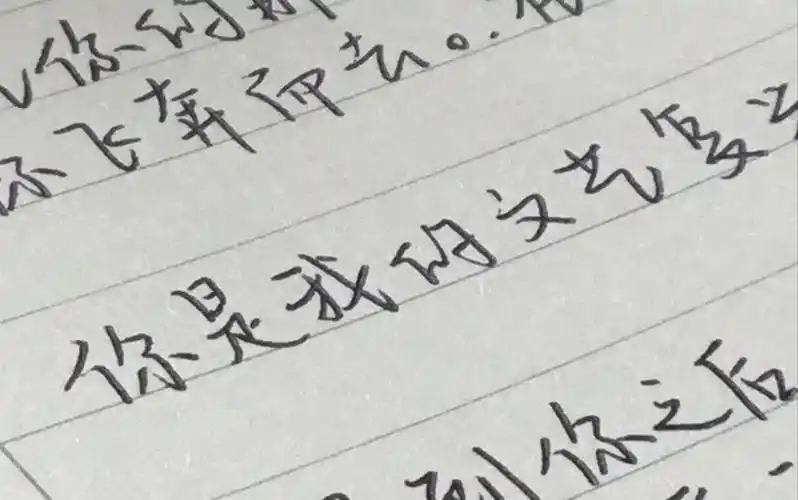 你的
你飞奔而去。
你是我的文艺复
到你之后